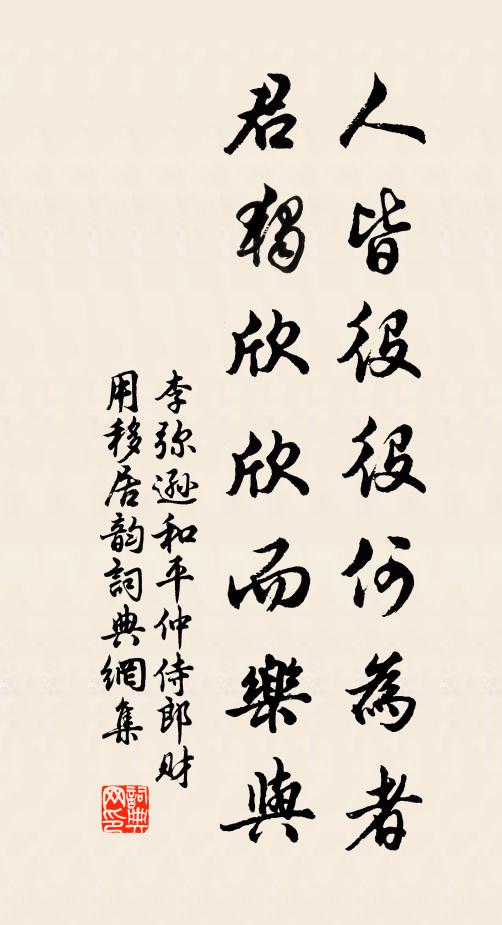 人皆役役何為者
君獨欣欣而樂與
李弥遜和平仲侍郎財
用移居韵詞典網集
詞典網印